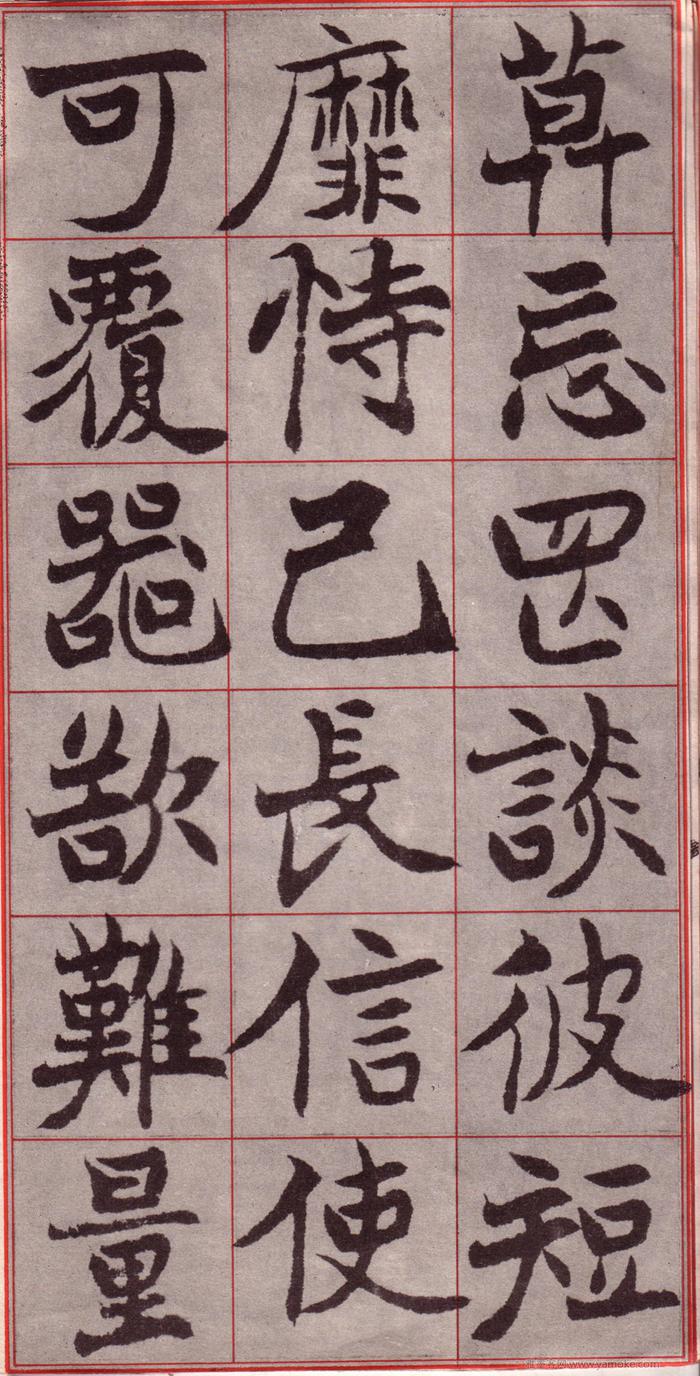 莫忘罔談彼短
靡恃己長信使
可覆器欲難量
www.yamoke.com